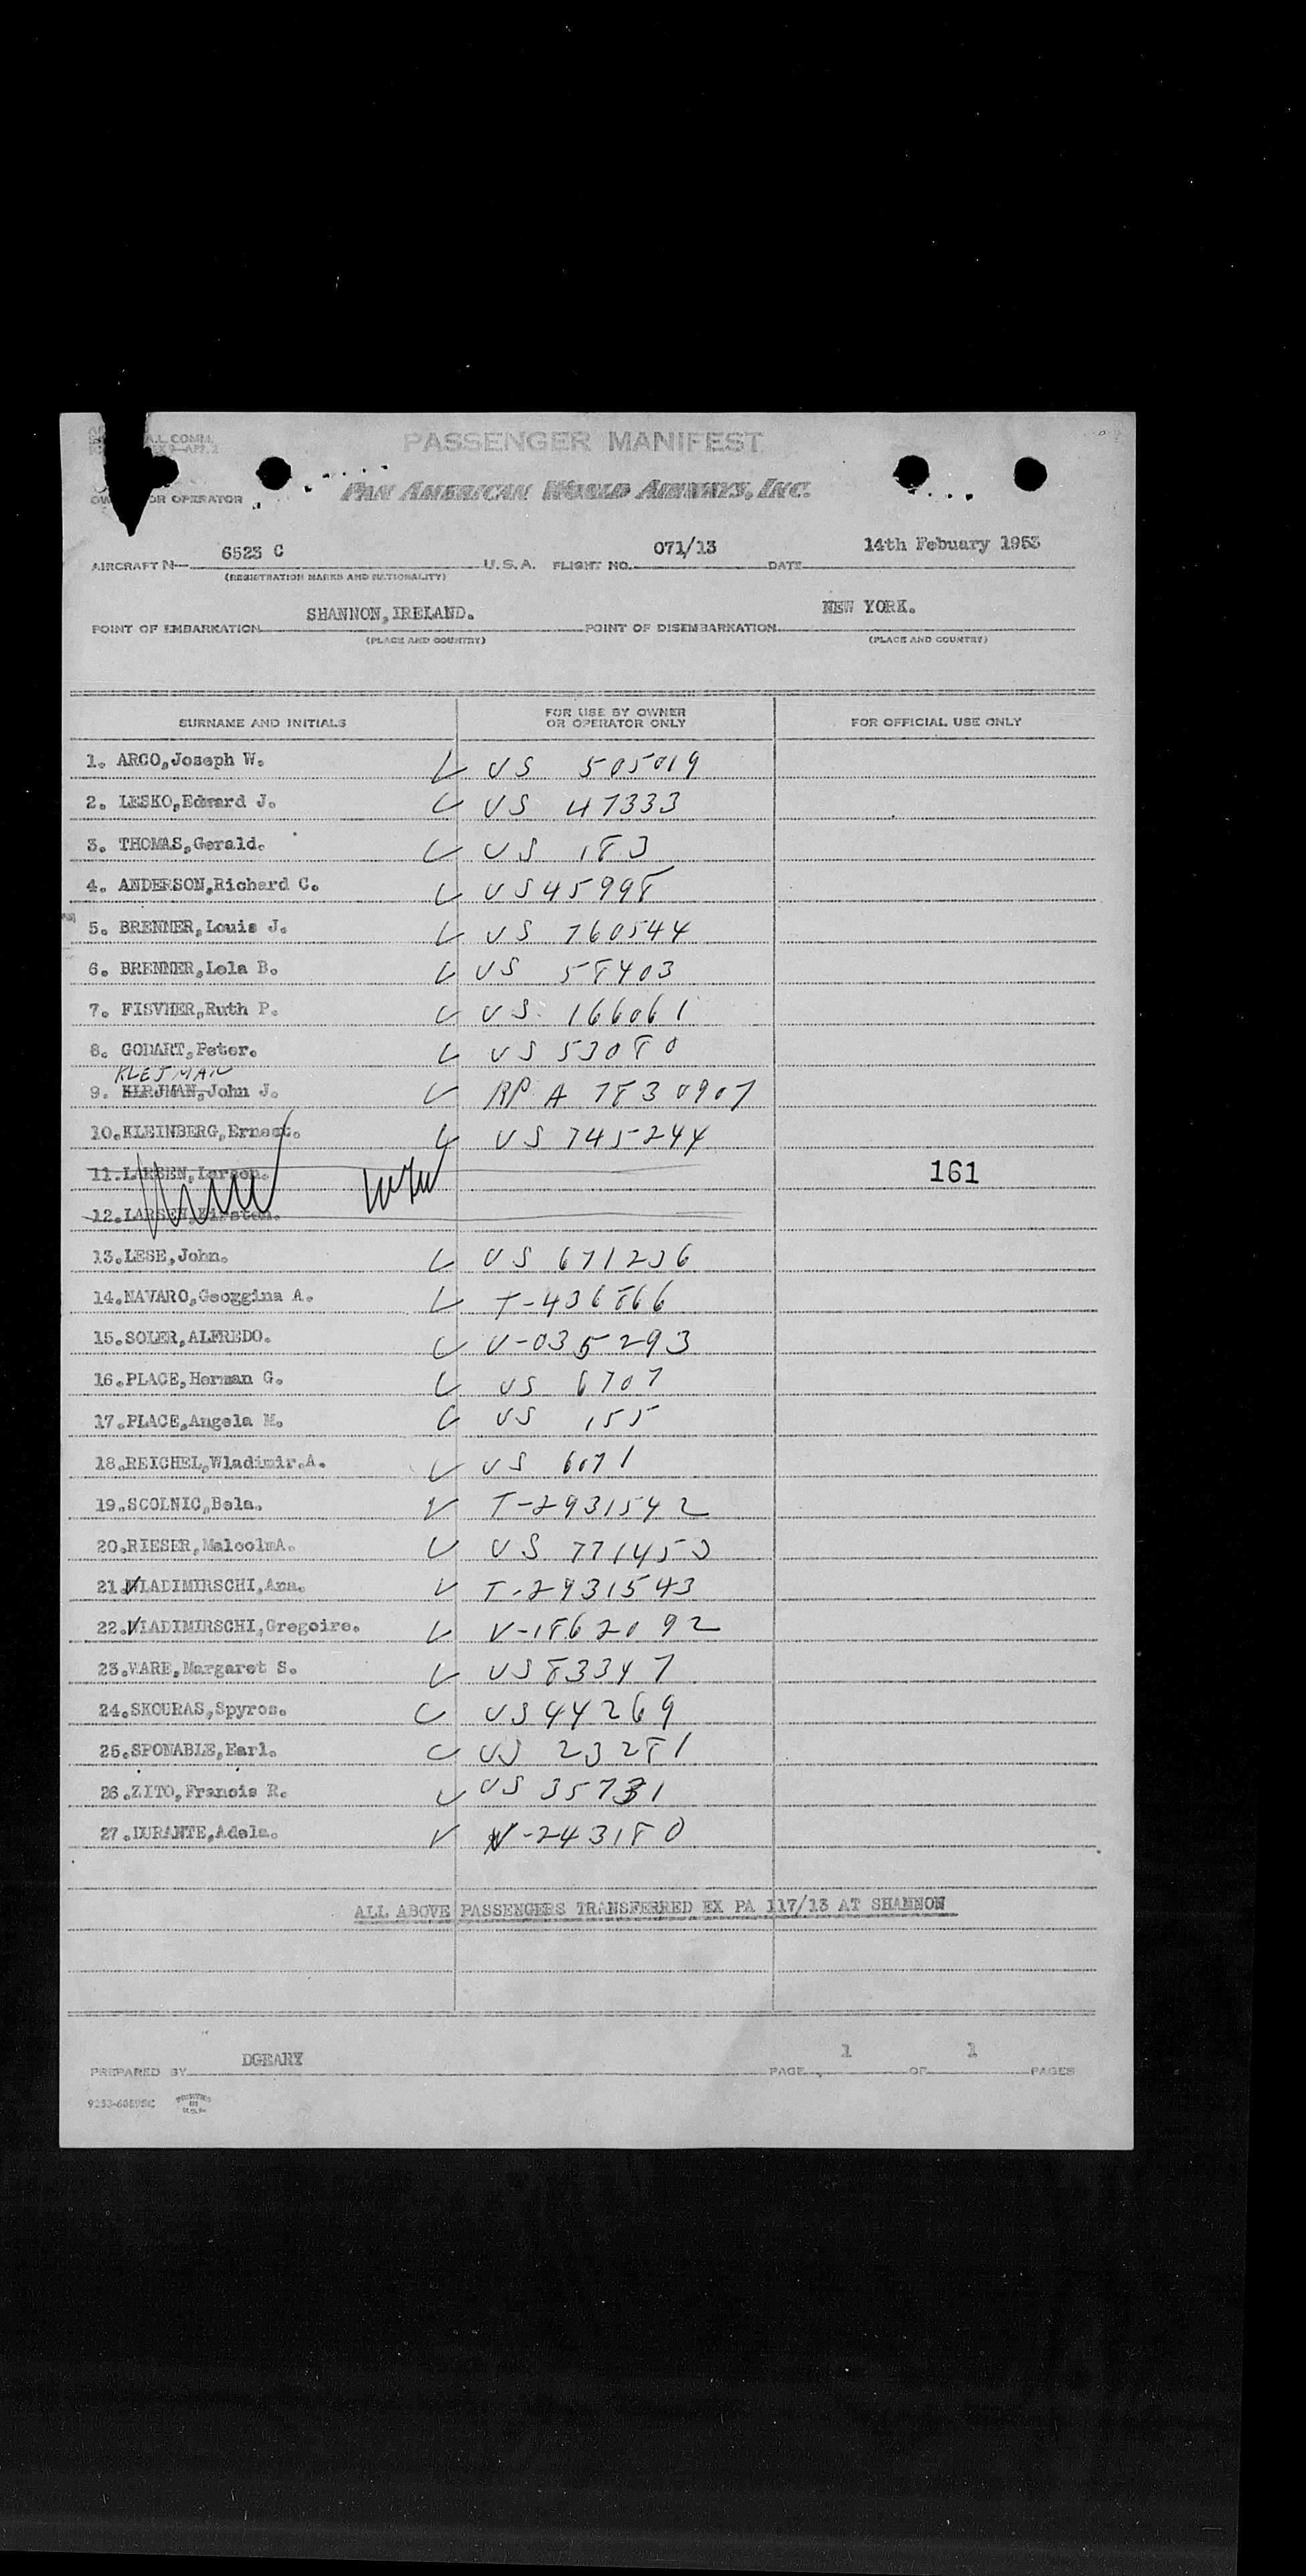 A.L. COMM.
PASSENGER MANIFEST
OR OPERATOR
PAN AMERICAN WORLD AIRWAYS, INC.
AIRCRAFT N— 6523 C U.S.A. FLIGHT NO. 071/13 DATE 14th Febuary 1953
(REGISTRATION MARKS AND NATIONALITY)
POINT OF EMBARKATION SHANNON,IRELAND. POINT OF DISEMBARKATION NEW YORK.
(PLACE AND COUNTRY) (PLACE AND COUNTRY)
SURNAME AND INITIALS FOR USE BY OWNER OR OPERATOR ONLY FOR OFFICIAL USE ONLY
1. ARCO,Joseph W. US 505019
2. LESKO,Edward J. US 47333
3. THOMAS,Gerald. US 183
4. ANDERSON,Richard C. US 45998
5. BRENNER,Louis J. US 760544
6. BRENNER,Lola B. US 58403
7. FISVHER,Ruth P. US 166061
8. GODART,Peter. US 53080
KLEJMAN
9. KLRJMAN,John J. RP A 7830907
10.KLEINBERG,Ernest. US 745244
11.LARSEN, 161
12.LARSEN,Kirsten.
13.LESE,John. US 671236
14.NAVARO,Geoggina A. T-436866
15.SOLER,ALFREDO. V-035293
16.PLACE,Herman G. US 6707
17.PLACE,Angela M. US 155
18.REICHEL,Wladimir.A. US 6071
19.SCOLNIC,Bela. T-2931542
20.RIESER,MalcolmA. US 771453
21.WLADIMIRSCHI,Ana. T-2931543
22.WIADIMIRSCHI,Gregoire. V-1862092
23.WARE,Margaret S. US 83347
24.SKOURAS,Spyros. US 44269
25.SPONABLE,Earl. US 23281
26.ZITO,Francis R. US 35731
27.DURANTE,Adela. V-243180
ALL ABOVE PASSENGERS TRANSFERRED EX PA 117/13 AT SHANNON
PREPARED BY DGEARY PAGE 1 OF 1 PAGES
PRINTED IN U.S.A.